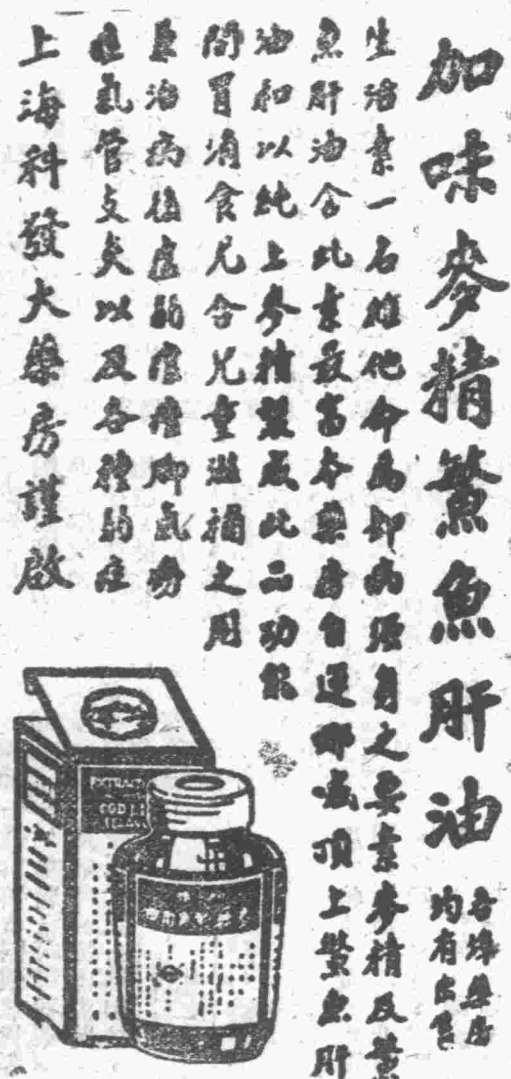 加味麥精鰵魚肝油
各埠藥房
均有出售
生活素一名維他命為却病強身之要素麥精及鰵
魚肝油含此素最富本藥房自運挪威頂上鰵魚肝
油和以純上麥精製成此品功能
開胃消食尤合兒童滋補之用
兼治病後虛弱瘰癧脚氣癆
症氣管支炎以及各種弱症
上海科發大藥房謹啟
EXTRACT
COD LI